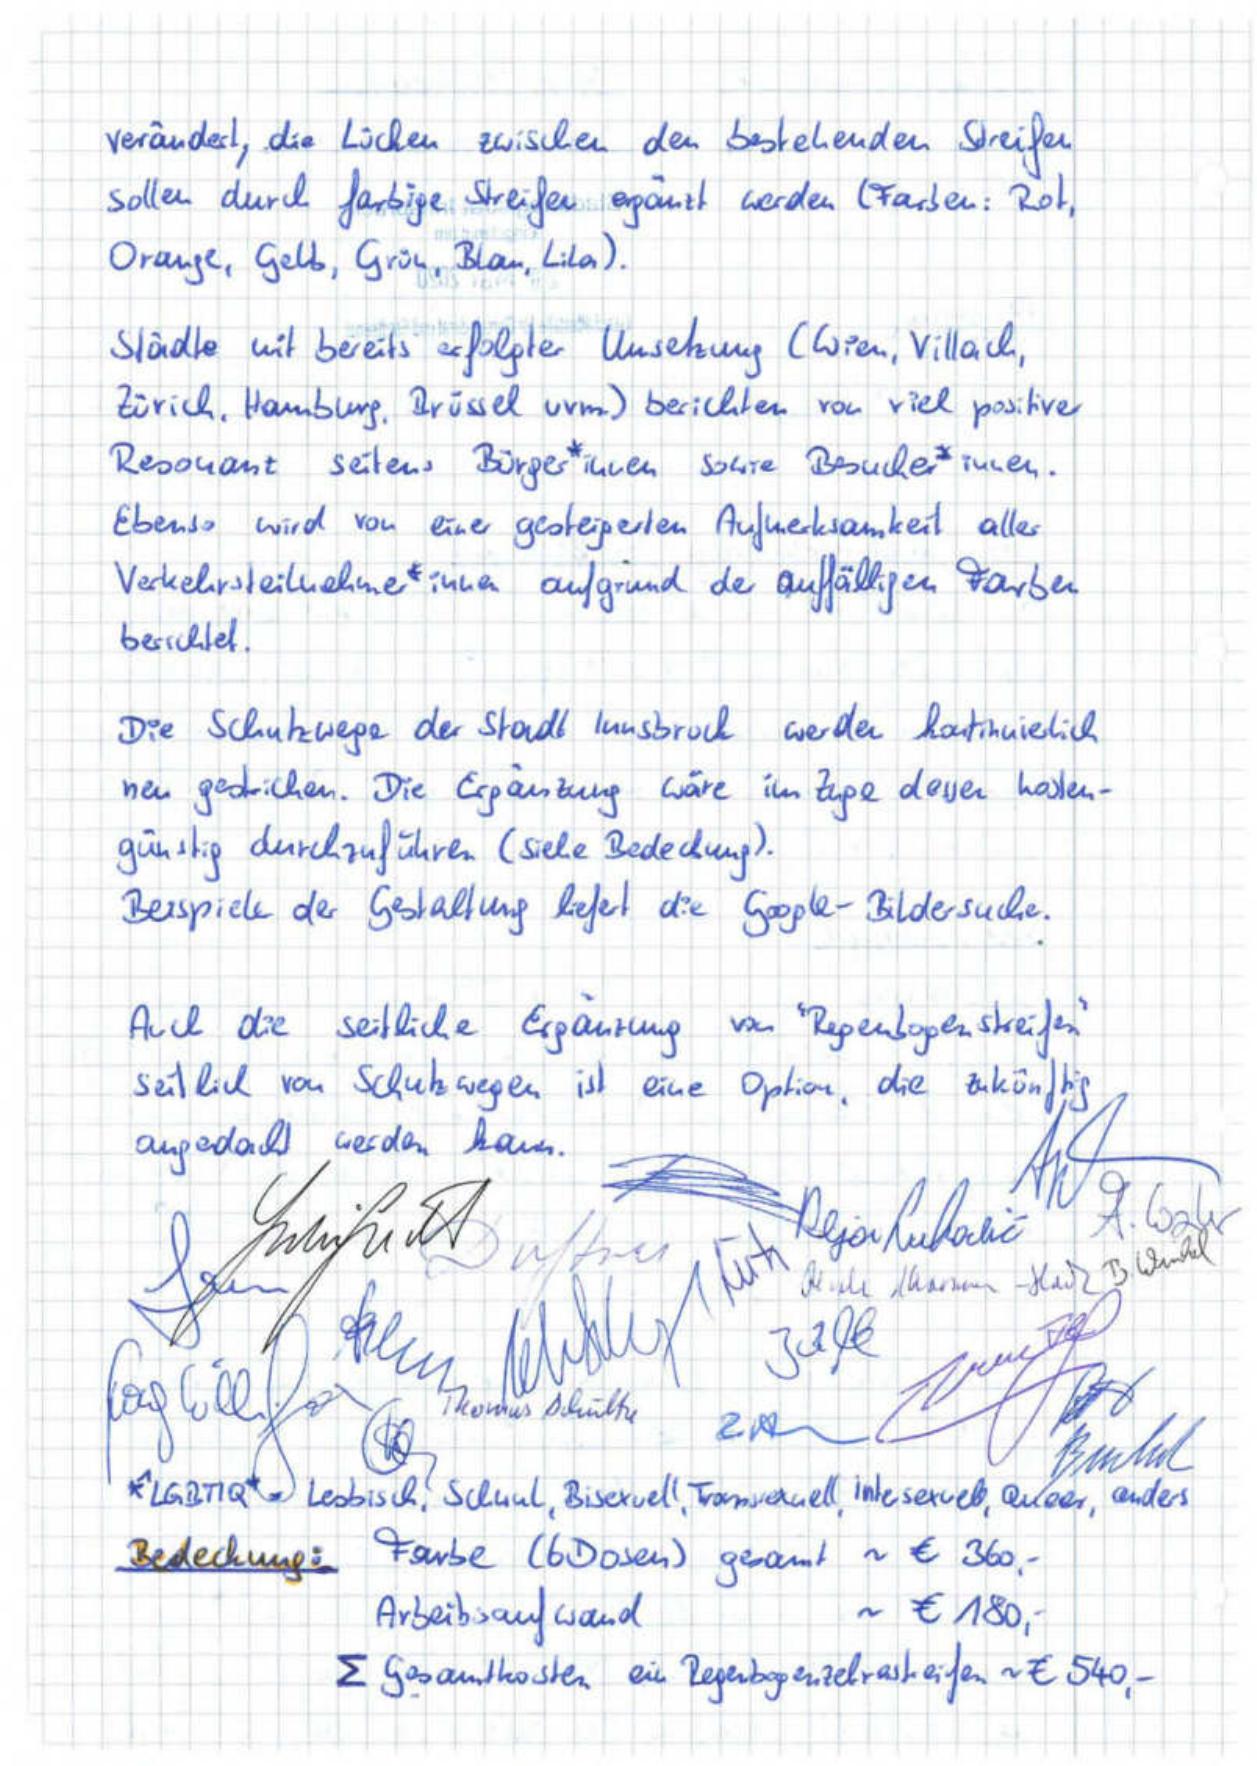 verändert, die Lücken zwischen den bestehenden Streifen
sollen durch farbige Streifen ergänzt werden (Farben: Rot,
Orange, Gelb, Grün, Blau, Lila).
Städte mit bereits erfolgter Umsetzung (Wien, Villach,
Zürich, Hamburg, Brüssel uvm.) berichten von viel positiver
Resonanz seitens Bürger*innen sowie Besucher*innen.
Ebenso wird von einer gesteigerten Aufmerksamkeit aller
Verkehrsteilnehmer*innen aufgrund der auffälligen Farben
berichtet.
Die Schutzwege der Stadt Innsbruck werden kontinuierlich
neu gestrichen. Die Ergänzung wäre im Zuge dessen kosten-
günstig durchzuführen (siehe Bedeckung).
Beispiele der Gestaltung liefert die Google-Bildersuche.
Auch die seitliche Ergänzung von "Regenbogenstreifen"
seitlich von Schutzwegen ist eine Option, die zukünftig
angedacht werden kann.
Dejan Lukovic
B. Winkel
Thomas Schultze
*LGBTIQ* = Lesbisch, Schwul, Bisexuell, Transsexuell, Intersexuell, Queer, anders
Bedeckung: Farbe (6 Dosen) gesamt ~ € 360,-
Arbeitsaufwand ~ € 180,-
Σ Gesamtkosten ein Regenbogenzebrastreifen ~ € 540,-